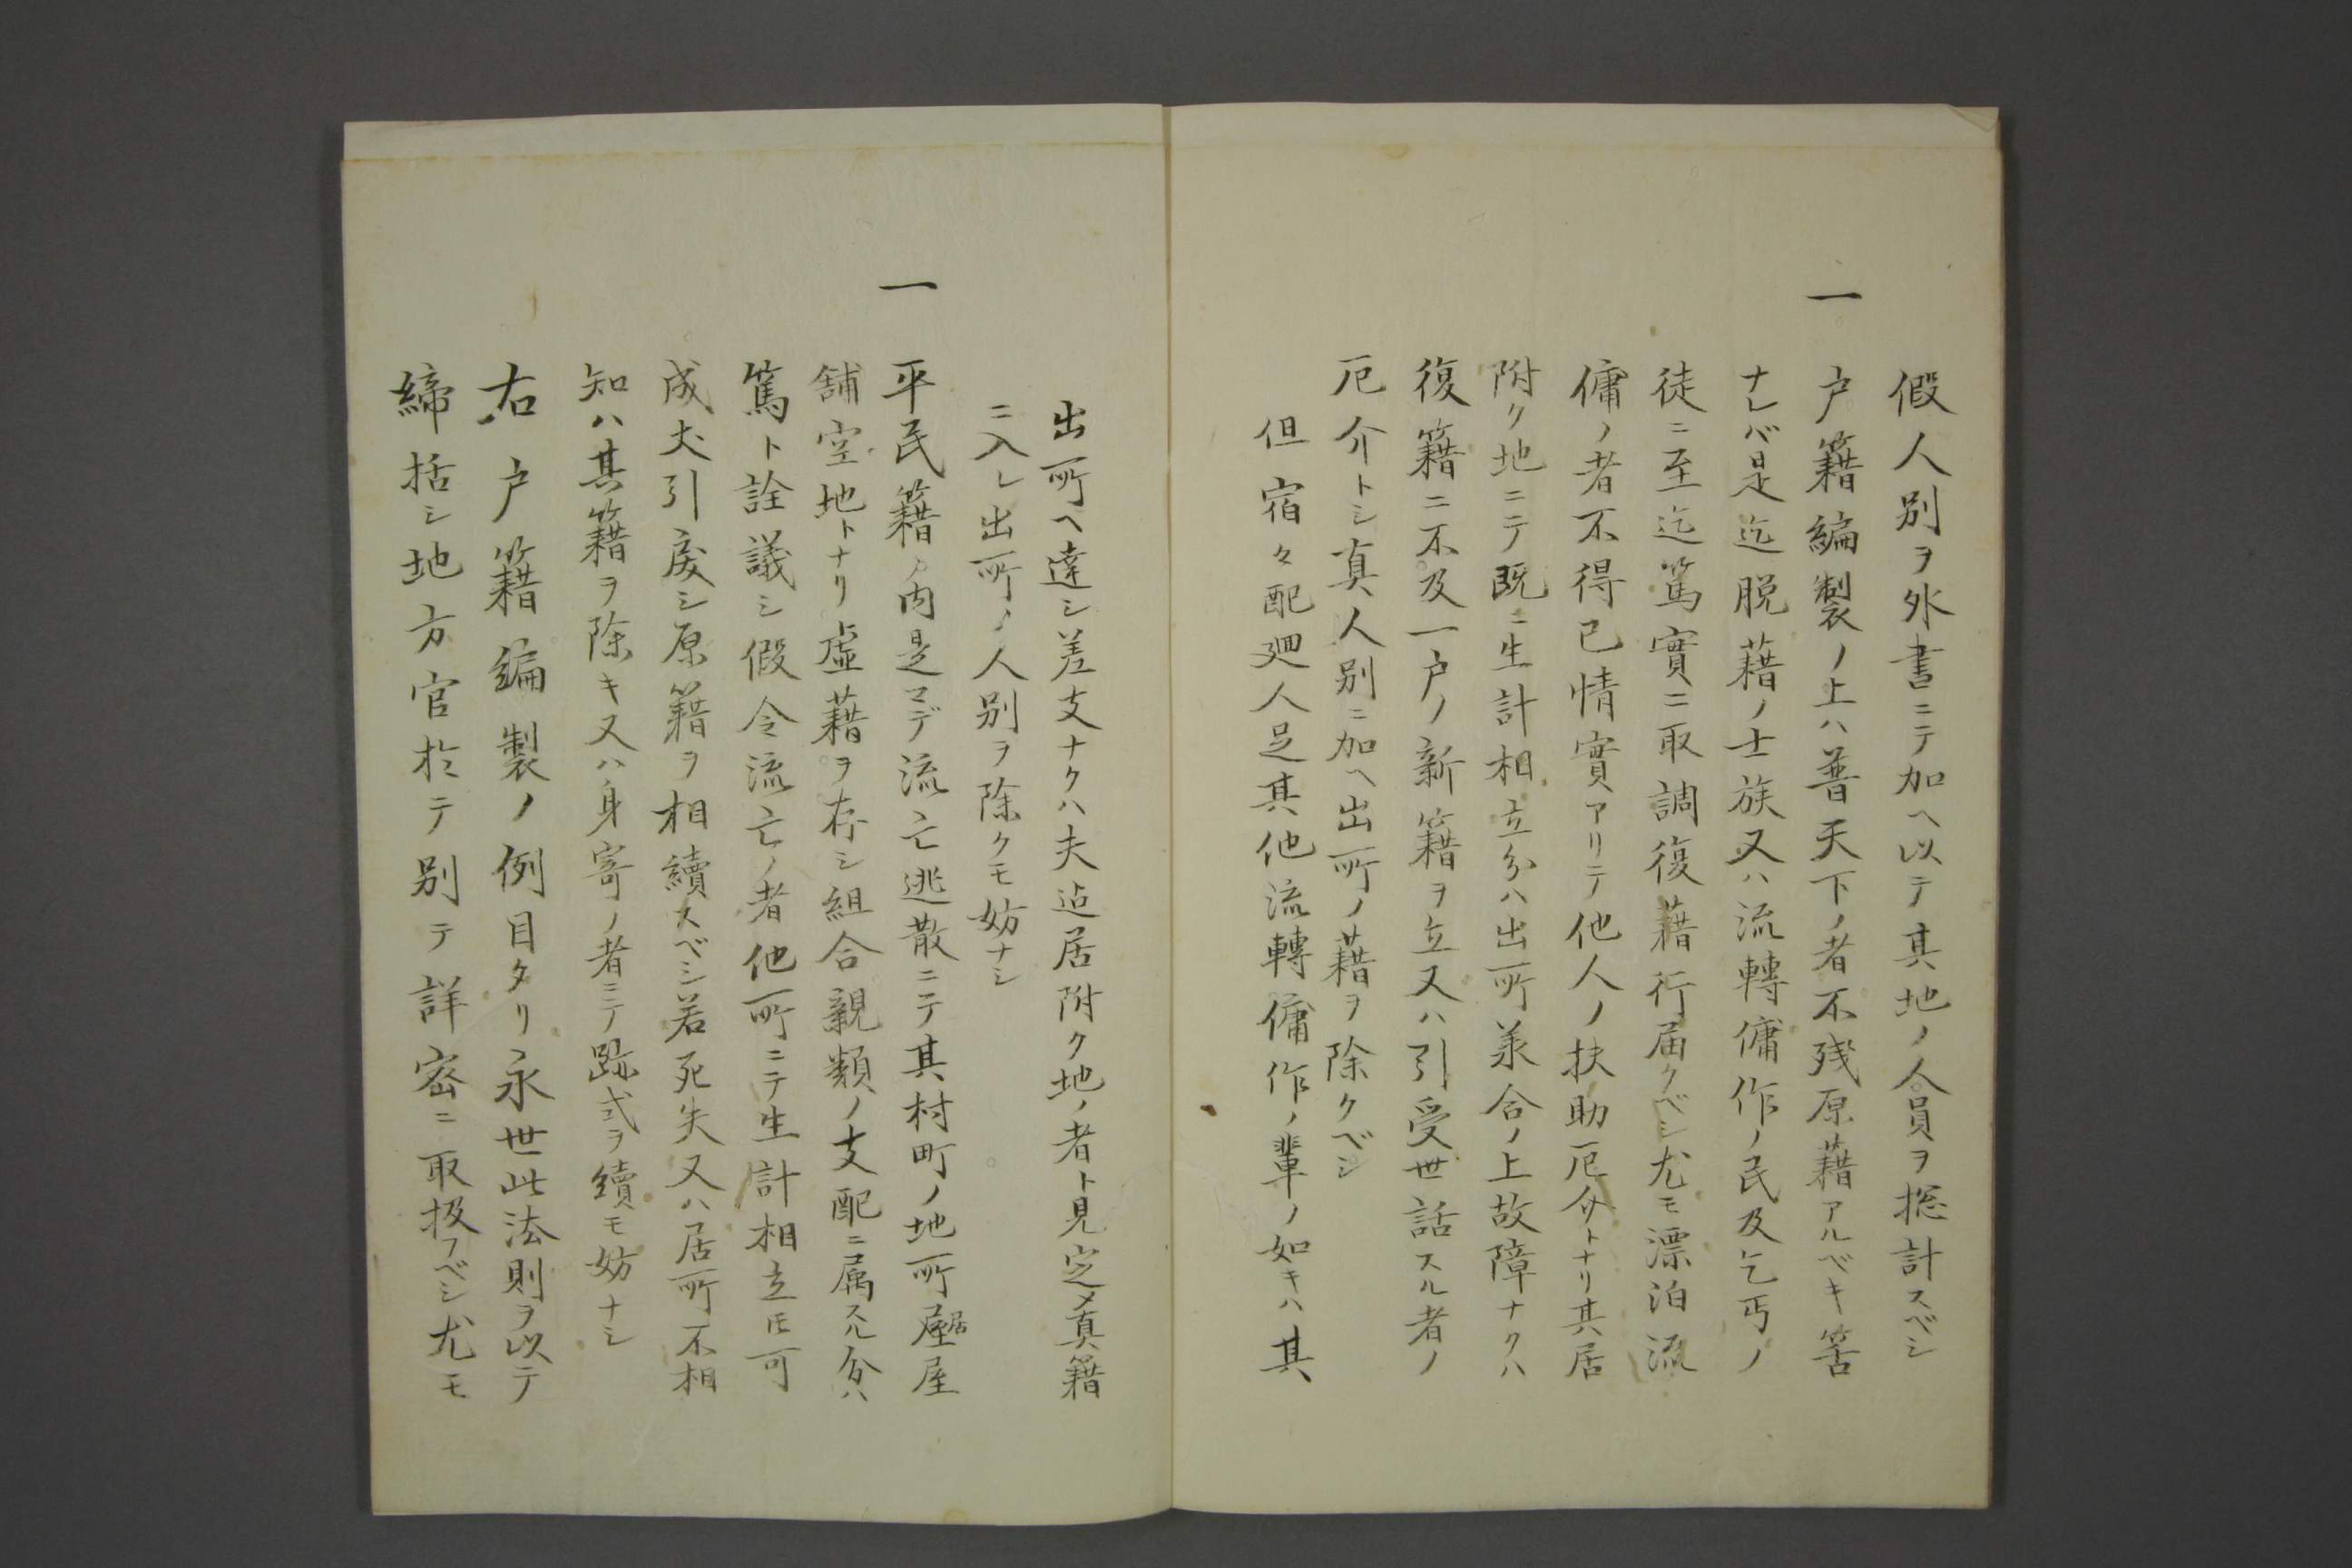 假人別ヲ外書ニテ加ヘ以テ其地ノ人員ヲ揔計スベシ
一
戸籍編製ノ上ハ普天下ノ者不残原籍アルベキ筈
ナレバ是迄脱籍ノ士族又ハ流轉傭作ノ民及乞丐ノ
徒ニ至迄篤實ニ取調復籍行届クベシ尤モ漂泊流
傭ノ者不得已情實アリテ他人ノ扶助厄介トナリ其居
附ク地ニテ既ニ生計相立分ハ出所兼合ノ上故障ナクハ
復籍ニ不及一戸ノ新籍ヲ立又ハ引受世話スル者ノ
厄介トシ真人別ニ加ヘ出所ノ籍ヲ除クベシ
但宿々配廻人足其他流轉傭作ノ輩ノ如キハ其
出所ヘ達シ差支ナクハ夫迠居附ク地ノ者ト見定メ真籍
ニ入レ出所ノ人別ヲ除クモ妨ナシ
一
平民籍ノ内是マデ流亡逃散ニテ其村町ノ地所居屋
舗空地トナリ虚籍ヲ存シ組合親類ノ支配ニ属スル分ハ
篤ト詮議シ假令流亡ノ者他所ニテ生計相立𪜈可
成丈引戻シ原籍ヲ相續スベシ若死失又ハ居所不相
知ハ其籍ヲ除キ又ハ身寄ノ者ニテ跡式ヲ續モ妨ナシ
右戸籍編製ノ例目タリ永世此法則ヲ以テ
締括シ地方官於テ別テ詳密ニ取扱フベシ尤モ